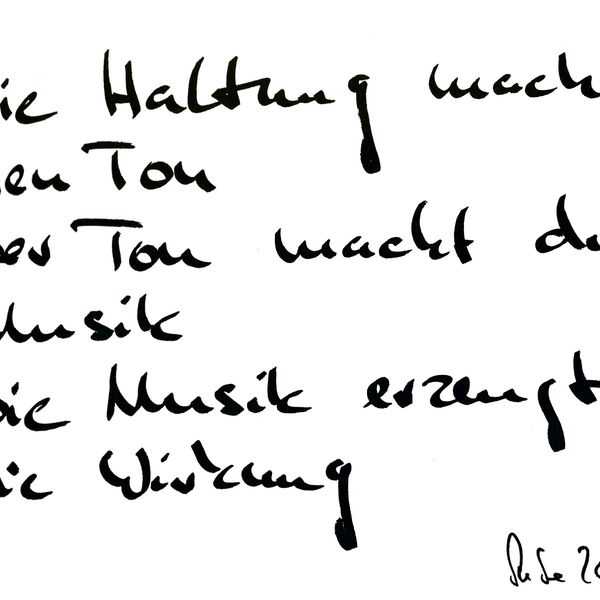 ie Haltung mach
en Ton
er Ton macht di
Musik
Die Musik erzeugt
ie Wirkung